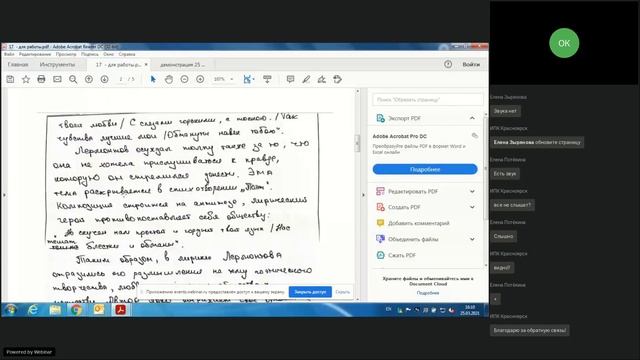 17 - для работы.pdf - Adobe Acrobat Reader DC (32-bit)
Файл Редактирование Просмотр Подпись Окно Справка
Главная Инструменты 17 - для работы.p... × демонстрация 25 ... Войти
2 / 5 107%
твоей любви / С слезами горькими, с тоскою. / Так
чувства лучшие мои / Обмануты навек тобою".
Лермонтов осуждал толпу также за то, что
она не хотела прислушиваться к правде,
которую он стремился донести. Эта
тема раскрывается в стихотворении „Поэт".
Композиция строится на антитезе, лирический
герой противопоставляет себя обществу:
"Но скучен нам простой и гордый твой язык / Нас
тешат блёстки и обманы".
Таким образом, в лирике Лермонтова
отразились его размышления на тему поэтического
творчества,
Поиск 'Обрезать страницу'
Экспорт PDF
Adobe Acrobat Pro DC
Преобразуйте файлы PDF в формат Word и Excel онлайн
Подробнее
Редактировать PDF
Создать PDF
Добавить комментарий
Объединить файлы
Сжать PDF
Храните файлы и обменивайтесь ими в Document Cloud
Приложению events.webinar.ru предоставлен доступ к вашему экрану.
Закрыть доступ
Скрыть
EN
16:10
25.03.2021
Powered by Webinar
ОК
Елена Зырянова
Звука нет
ИПК Красноярск
Елена Зырянова обновите страницу
Елена Потёкина
Есть звук
ИПК Красноярск
все не слышат?
Елена Потёкина
Слышно
ИПК Красноярск
видно?
Елена Потёкина
+
ИПК Красноярск
Благодарю за обратную связь!